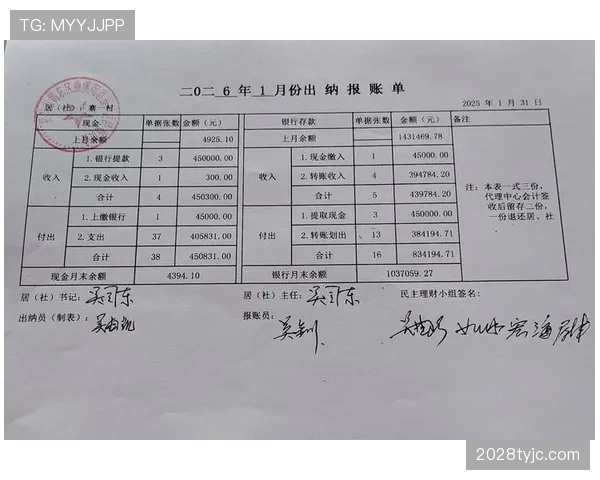 TG: MYYJJPP
二〇二6年1月份出纳报账单
居（社）：寨一村
2025 年 1 月 31 日
现金 单据张数 金额（元） 银行存款 单据张数 金额（元） 备注
上月余额 4925.10 上月余额 1431469.78
收入 1.银行提款 3 450000.00 收入 1.现金缴入 1 45000.00
2.现金收入 1 300.00 2.转账收入 4 394784.20
合计 4 450300.00 合计 5 439784.20
付出 1.上缴银行 1 45000.00 付出 1.提取现金 3 450000.00
2.支出 37 405831.00 2.转账划出 13 384194.71
合计 38 450831.00 合计 16 834194.71
注：本表一式三份，
代理中心会计签
收后留存二份，
一份退还居、社
现金月末余额 4394.10 银行月末余额 1037059.27
居（社）书记： 居（社）主任： 民主理财小组签名：
出纳员（制表）： 报账员：
2028tyjc.com